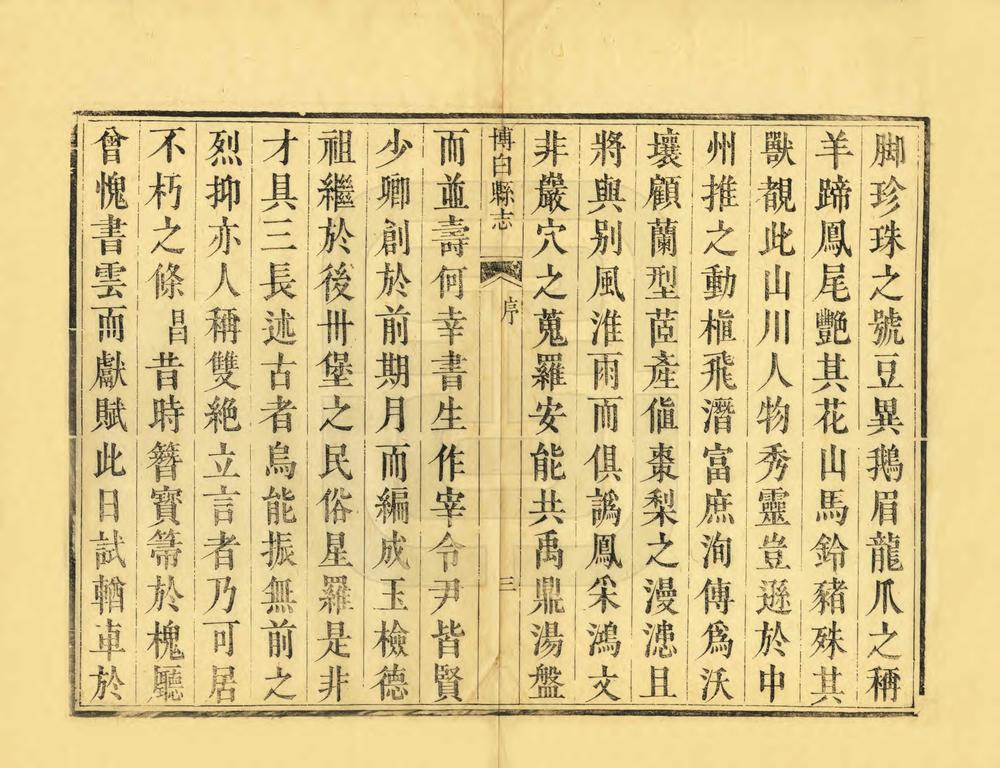 脚珍珠之號豆異鵝眉龍爪之稱
羊蹄鳳尾艷其花山馬鈴豬殊其
獸覩此山川人物秀靈豈遜於中
州推之動植飛潛富庶洵傳爲沃
壤顧蘭型茝產傎棗梨之漫漶且
將與别風淮雨而俱譌鳳采鴻文
非嚴穴之蒐羅安能共禹鼎湯盤
博白縣志
序
三
而並壽何幸書生作宰令尹皆賢
少卿創於前期月而編成玉檢德
祖繼於後卌堡之民俗星羅是非
才具三長述古者烏能振無前之
烈抑亦人稱雙絶立言者乃可居
不朽之條昌昔時簪寶箒於槐廳
曾愧書雲而獻賦此日試輶車於